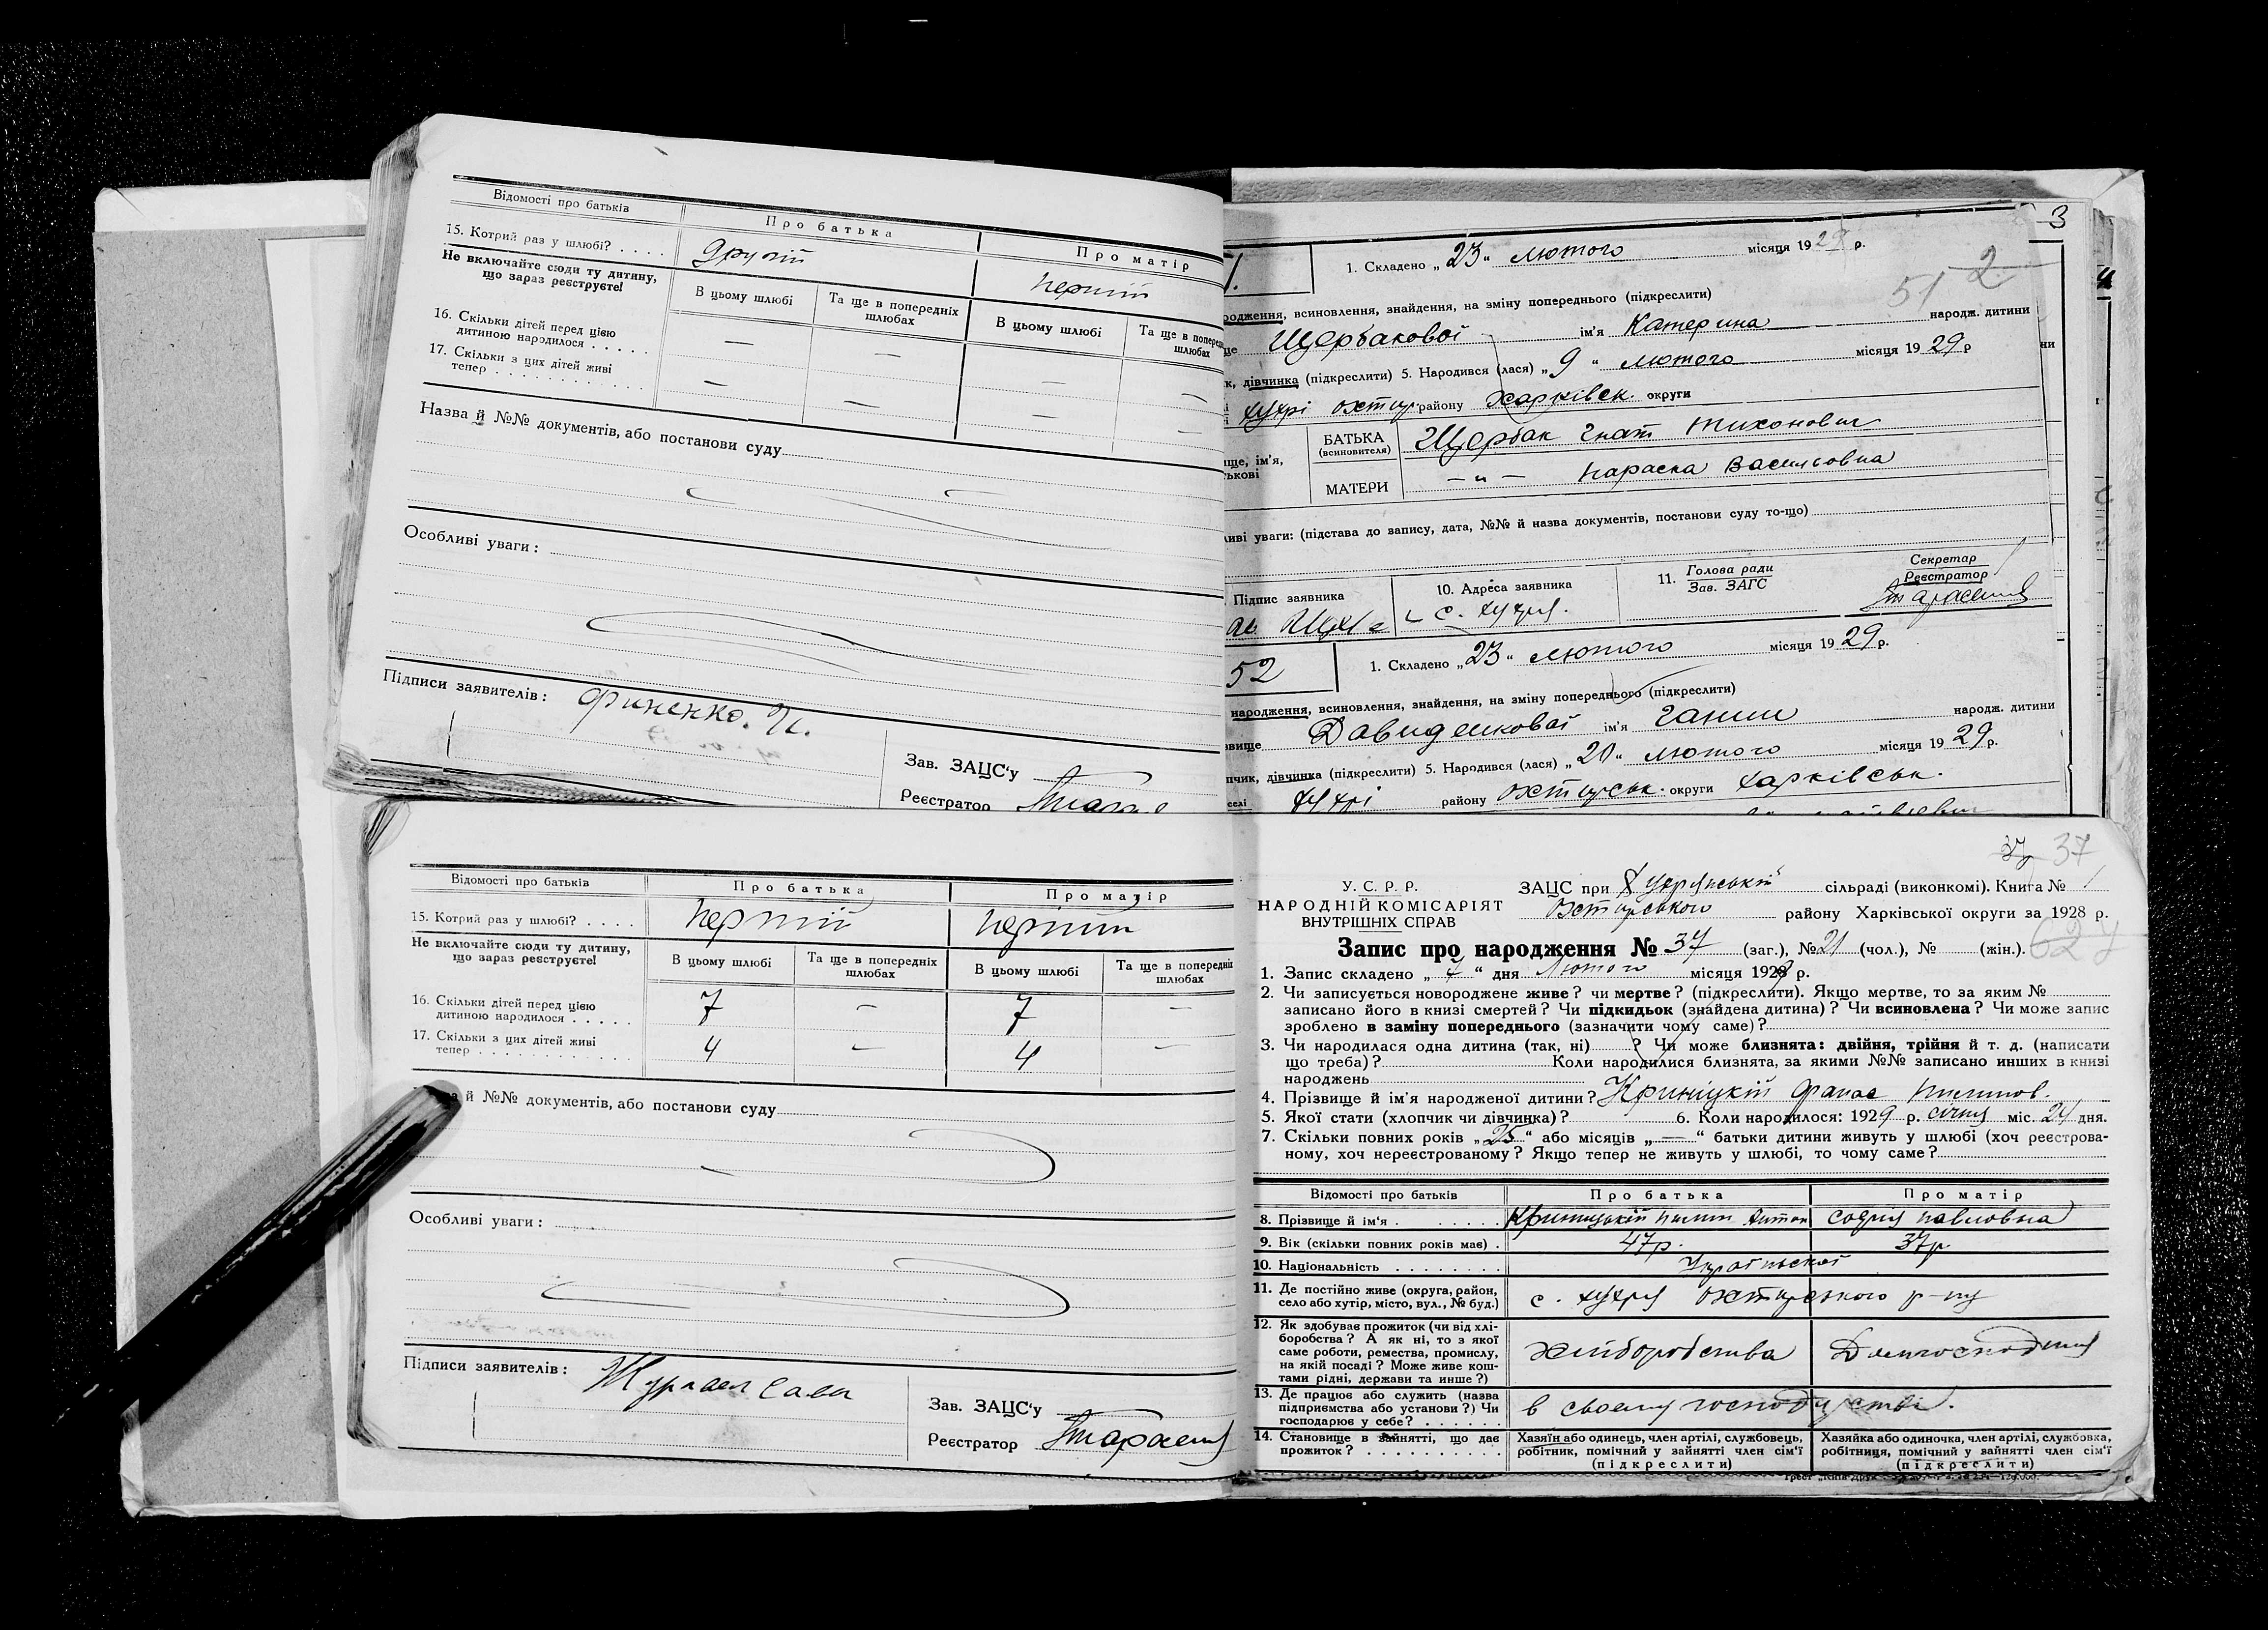 Відомості про батьків
Про батька
Про матір
15. Котрий раз у шлюбі? . . . .
другий
перший
Не включайте сюди ту дитину,
що зараз реєструєте!
В цьому шлюбі
Та ще в попередніх
шлюбах
В цьому шлюбі
Та ще в поперед
шлюбах
16. Скільки дітей перед цією
дитиною народилося . . . . .
— — —
17. Скільки з цих дітей живі
тепер . . . . . . . . . . . .
— — — —
Назва й №№ документів, або постанови суду
Особливі уваги:
Підписи заявителів:
Финенко.
Зав. ЗАЦС'у
Реєстратор
3
1.
1. Складено „23" лютого місяця 1929 р.
51 2
родження, всиновлення, знайдення, на зміну попереднього (підкреслити)
Щербакової ім'я Катерина народж. дитини
к, дівчинка (підкреслити) 5. Народився (лася) „9" лютого місяця 1929 р
хухрі охтир. району Харківськ. округи
БАТЬКА
(всиновителя)
Щербак Гнат Тихонович
ще, ім'я,
ькові
МАТЕРИ
— „ — Параска Васильовна
иві уваги: (підстава до запису, дата, №№ й назва документів, постанови суду то-що)
Підпис заявника
10. Адреса заявника
с. хухря.
11. Голова ради
Зав. ЗАГС
Секретар
Реєстратор
52
1. Складено „23" лютого місяця 1929 р.
народження, всиновлення, знайдення, на зміну попереднього (підкреслити)
вище Давиденкової ім'я Ганни народж. дитини
пчик, дівчинка (підкреслити) 5. Народився (лася) „20" лютого місяця 1929 р.
селі хухрі району охтирськ. округи харківськ.
Відомості про батьків
Про батька
Про матір
15. Котрий раз у шлюбі? . . . .
перший
перший
Не включайте сюди ту дитину,
що зараз реєструєте!
В цьому шлюбі
Та ще в попередніх
шлюбах
В цьому шлюбі
Та ще в попередніх
шлюбах
16. Скільки дітей перед цією
дитиною народилося . . . . .
7 — 7 —
17. Скільки з цих дітей живі
тепер . . . . . . . . . . . .
4 — 4 —
й №№ документів, або постанови суду
Особливі уваги:
Підписи заявителів:
Журавел Сава
Зав. ЗАЦС'у
Реєстратор
37
У. С. Р. Р.
НАРОДНІЙ КОМІСАРІЯТ
ВНУТРІШНІХ СПРАВ
ЗАЦС при Хухрянській сільраді (виконкомі). Книга № 1
Охтирського району Харківської округи за 1928 р.
Запис про народження № 37 (заг.), № 21 (чол.), № (жін.).
627
1. Запис складено „4" дня Лютого місяця 1929 р.
2. Чи записується новороджене живе? чи мертве? (підкреслити). Якщо мертве, то за яким №
записано його в книзі смертей? Чи підкидьок (знайдена дитина)? Чи всиновлена? Чи може запис
зроблено в заміну попереднього (зазначити чому саме)?
3. Чи народилася одна дитина (так, ні) ? Чи може близнята: двійня, трійня й т. д. (написати
що треба)? Коли народилися близнята, за якими №№ записано инших в книзі
народжень
4. Прізвище й ім'я народженої дитини? Криніцкій Фанас Пилипов.
5. Якої стати (хлопчик чи дівчинка)? 6. Коли народилося: 1929 р. січня міс. 24 дня.
7. Скільки повних років „25" або місяців „—" батьки дитини живуть у шлюбі (хоч реєстрова-
ному, хоч нереєстрованому? Якщо тепер не живуть у шлюбі, то чому саме?
Відомості про батьків
Про батька
Про матір
8. Прізвище й ім'я . . . . . . .
Криницький Пилип Антон
Софія Павловна
9. Вік (скільки повних років має) .
47р.
37р.
10. Національність . . . . . . . .
Української
11. Де постійно живе (округа, район,
село або хутір, місто, вул., № буд.)
с. хухря охтирського р-ну
12. Як здобуває прожиток (чи від хлі-
боробства? А як ні, то з якої
саме роботи, ремества, промислу,
на якій посаді? Може живе кош-
тами рідні, держави та инше?)
хліборобства
Домгосподиня
13. Де працює або служить (назва
підприємства або установи?) Чи
господарює у себе? . . . . . .
в своєму господарстві.
14. Становище в зайнятті, що дає
прожиток? . . . . . . . . . .
Хазяїн або одинець, член артілі, службовець,
робітник, помічний у зайнятті член сім'ї
(підкреслити)
Хазяйка або одиночка, член артілі, службовка,
робітниця, помічний у зайнятті член сім'ї
(підкреслити)